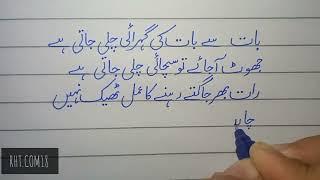 بات سے بات کی گہرائی چلی جاتی ہے
جھوٹ آجائے تو سچائی چلی جاتی ہے
رات بھر جاگتے رہنے کا عمل ٹھیک نہیں
RHT.COM18